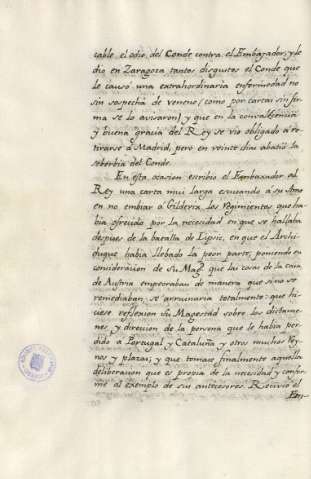 cable, el odio del Conde contra el Embaxador, y le
dio en Zaragoza tantos disgustos el Conde que
le causó una extrahordinaria enfermedad no
sin sospecha de veneno (como por cartas sin fir=
ma se lo avisaron) y que en la convalesencia
y buena gracia del Rey se vio obligado a re=
tirarse a Madrid, pero en veinte dias abatió la
soberbia del Conde.
En esta ocasion escribio el Embaxador al
Rey una carta muy larga escusando a su Amo
en no embiar a Gilderia los Regimientos que ha=
bia ofrecido por la necesidad en que se hallaba
despues de la batalla de Lipsic, en que el Archi=
duque habia llebado la peor parte, poniendo en
consideracion de su Mag.d que las cosas de la casa
de Austria empeoraban de manera que si no se
remediaban se arruinaria totalmente: que hi=
ciese reflexion su Magestad sobre los dictame=
nes, y direcion de la persona que le habia per=
dido a Portugal y Cataluña y otros muchos Rey=
nos y plazas; y que tomase finalmente aquella
deliberacion que es propia de la necesidad y confor=
me al exemplo de sus antecesores. Recivió el